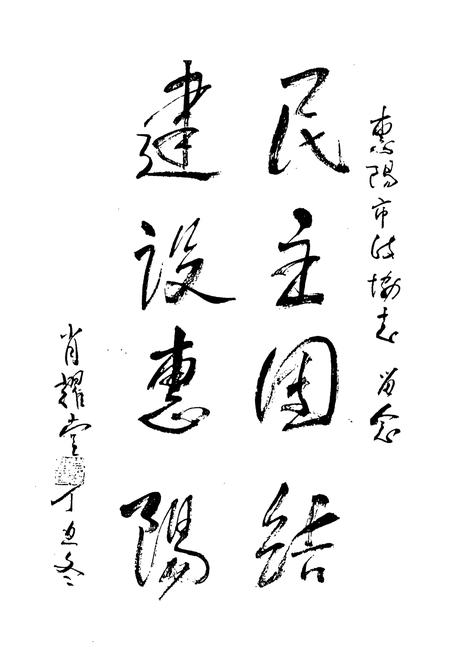 惠阳市政协志 留念
民主团结
建设惠陽
肖耀堂
丁丑冬